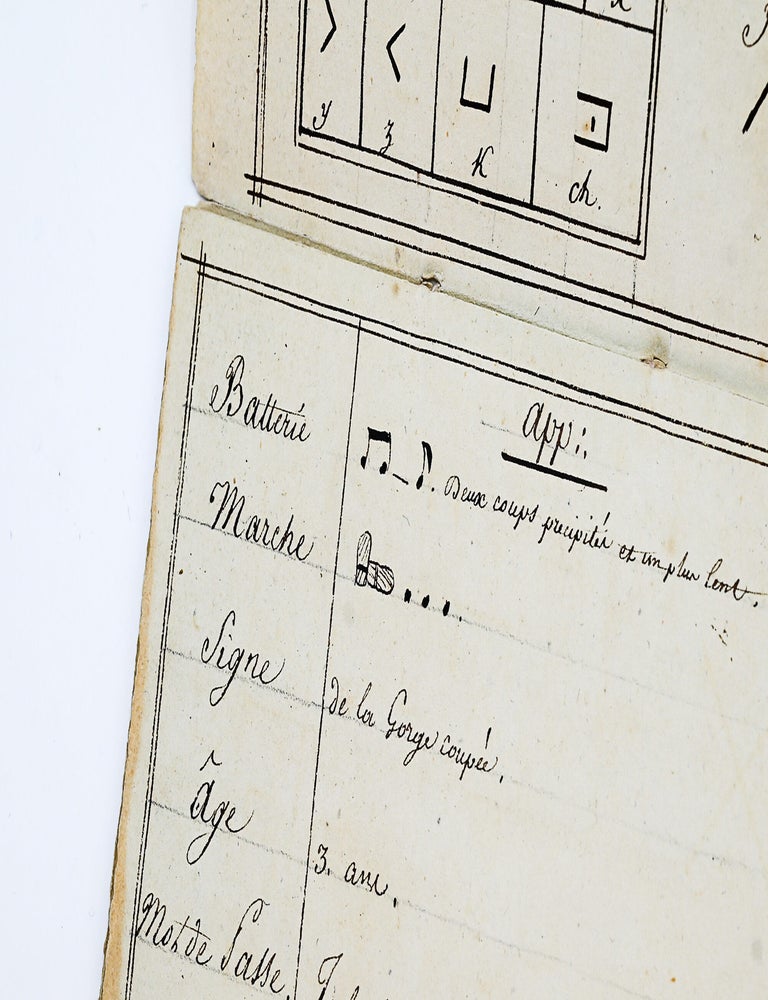 x
y z K ch.
app∴
Batterie . Deux coups precipités et un plus lent.
Marche ....
Signe de la Gorge coupée.
âge 3. ans.
Mot de Passe.